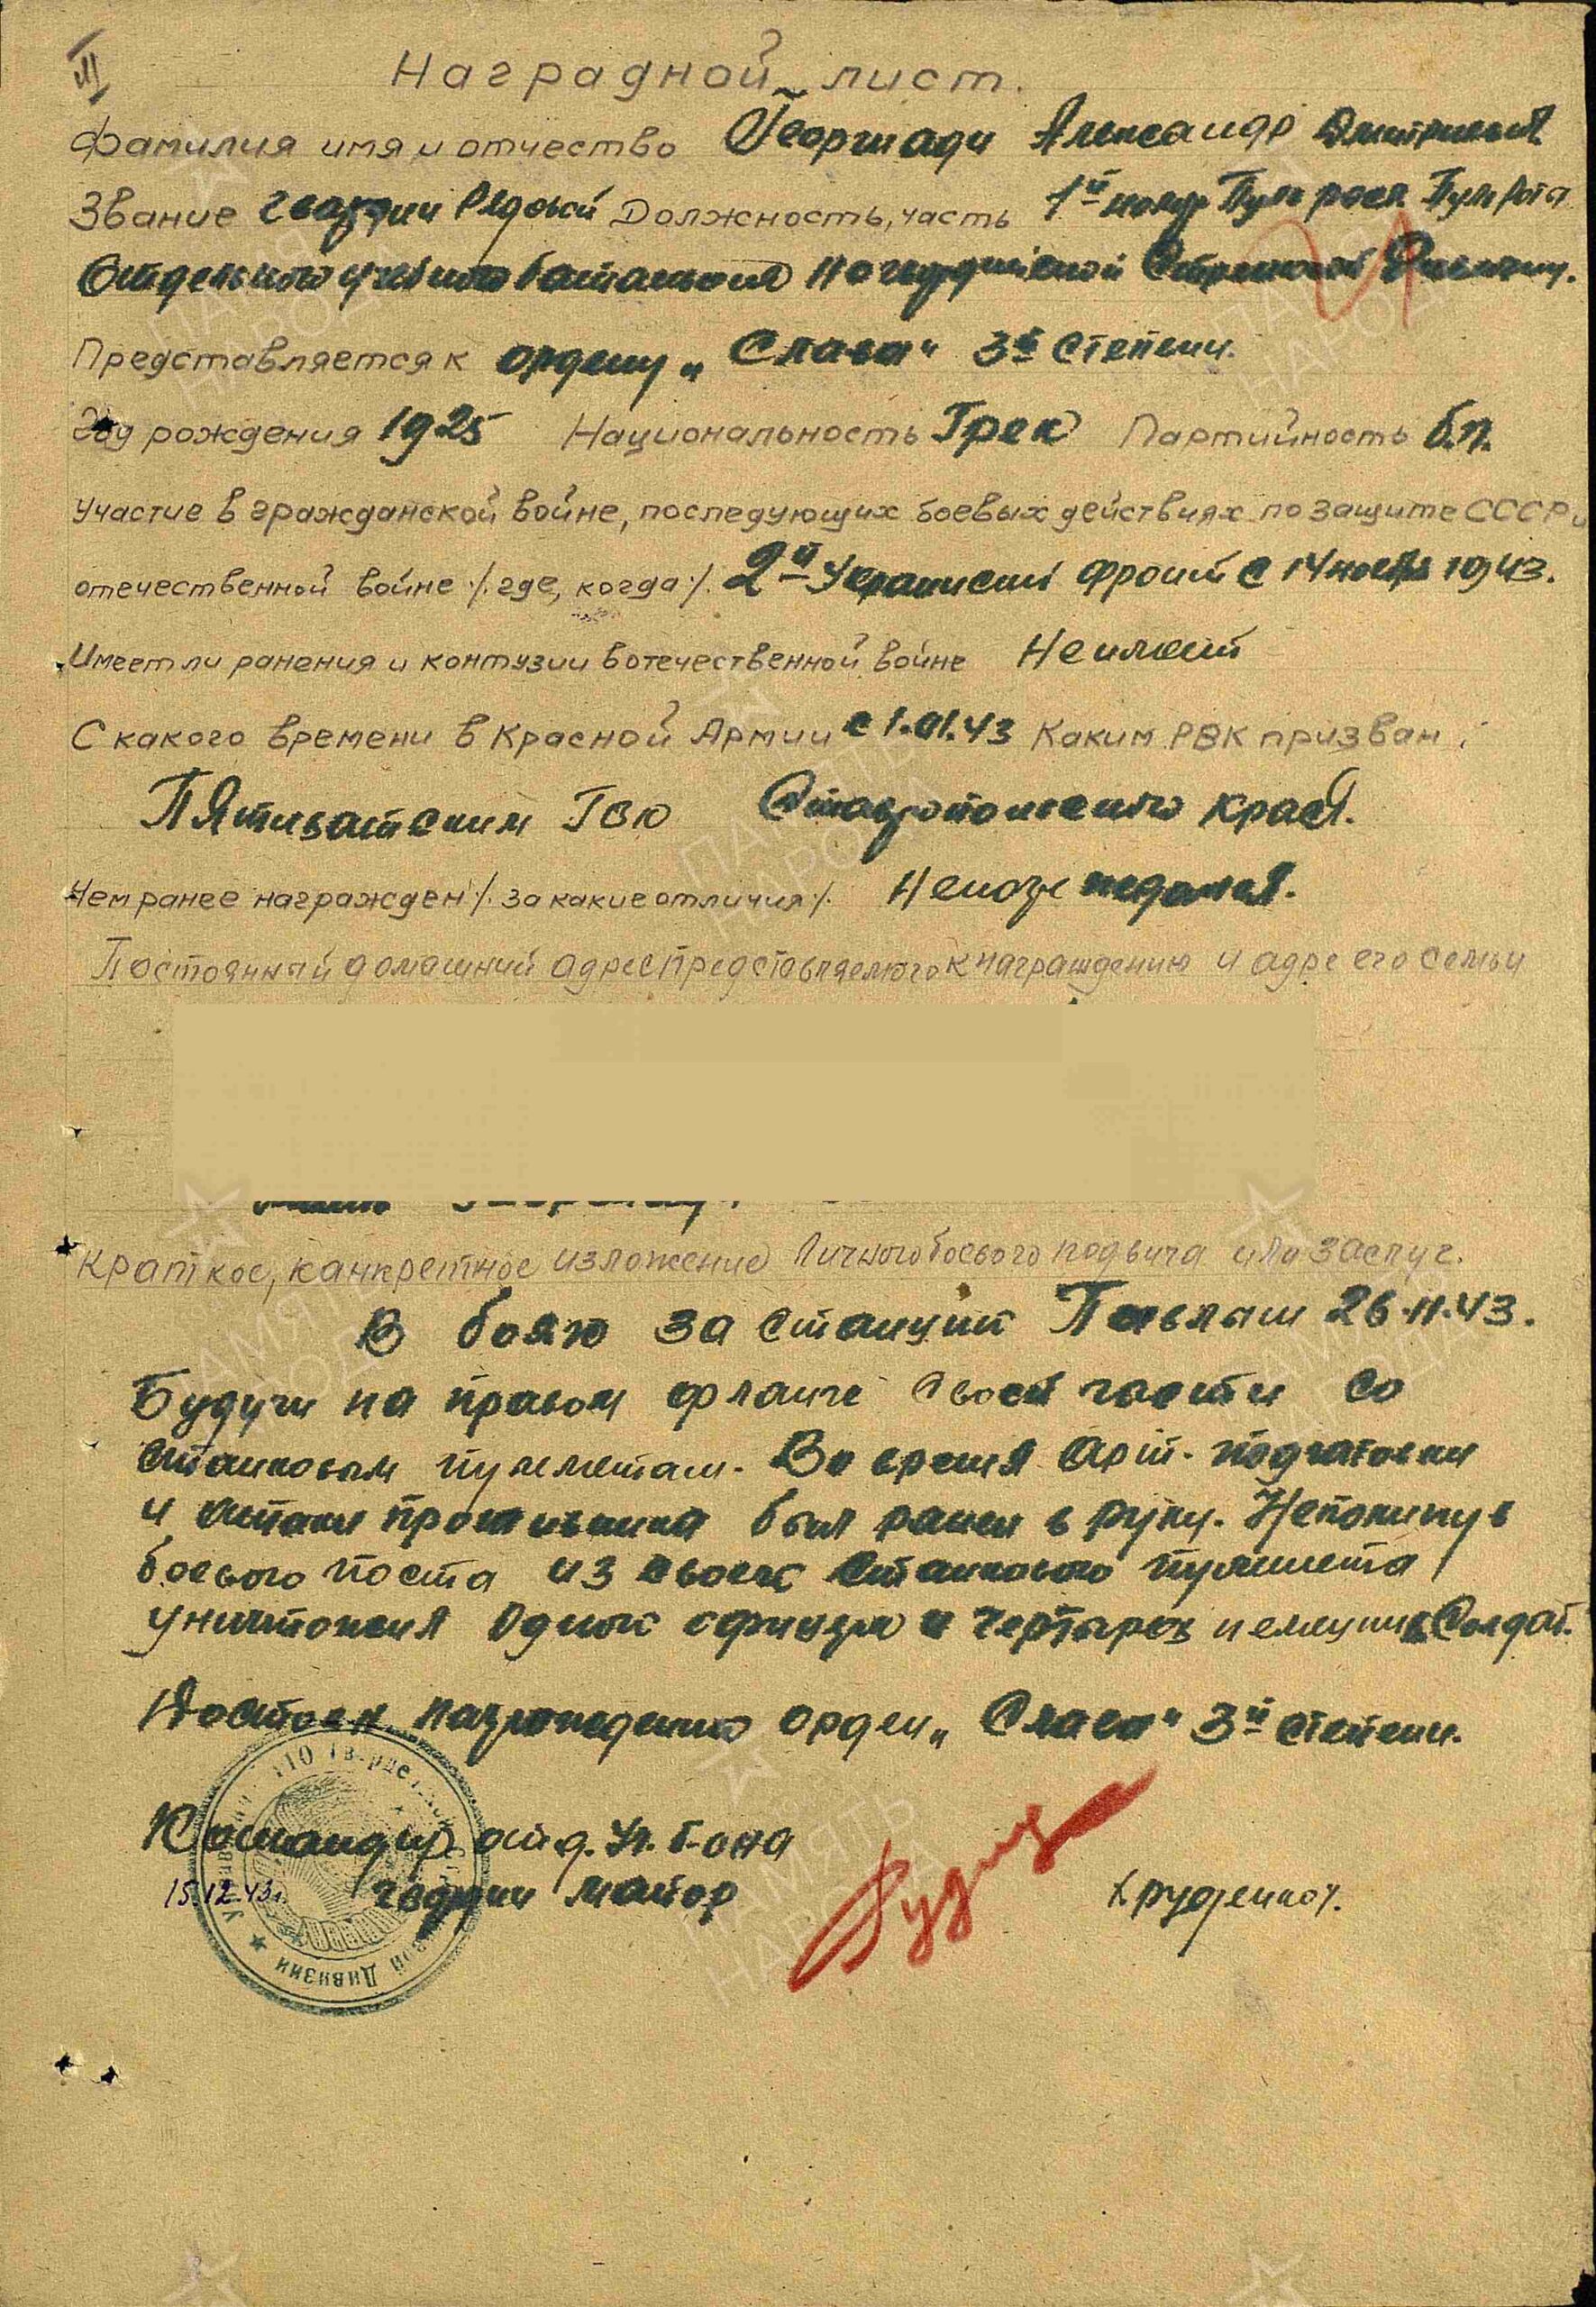 III
Наградной лист.
Фамилия имя и отчество Георгиади Александр Дмитриевич
Звание гвардии Рядовой Должность, часть 1й номер Пул. расч. Пуль Рота
Отдельного учебного батальона 110 гвардейской Стрелковой Дивизии.
Представляется к ордену „Слава" 3й Степени.
Год рождения 1925 Национальность Грек Партийность б.п.
Участие в гражданской войне, последующих боевых действиях по защите СССР и
отечественной войне /. где, когда /. 2й Украинский фронт с 14 ноября 1943.
Имеет ли ранения и контузии в отечественной войне Не имеет
С какого времени в Красной Армии с 1.01.43 Каким РВК призван
Ставропольского края.
Чем ранее награжден /. за какие отличия /. Не награждался.
Постоянный домашний адрес представляемого к награждению и адре его семьи
Краткое, канкретное изложение личного боевого подвига или заслуг.
В боях за станцию 26.11.43.
Будучи на правом фланге своей части со
станковым пулеметам. Во время арт. подготовки
и атаки противника был ранен в руку. Непокинув
боевого поста из своего станкового пулемета
уничтожил одного офицера и четырех немецких Солдат.
Достоен награждению орден „Слава" 3й степени.
Командир отд. Уч. б-она
15.12.43г. гвардии майор /Руденко/.
110 Гв.
Дивизии
ПАМЯТЬ НАРОДА